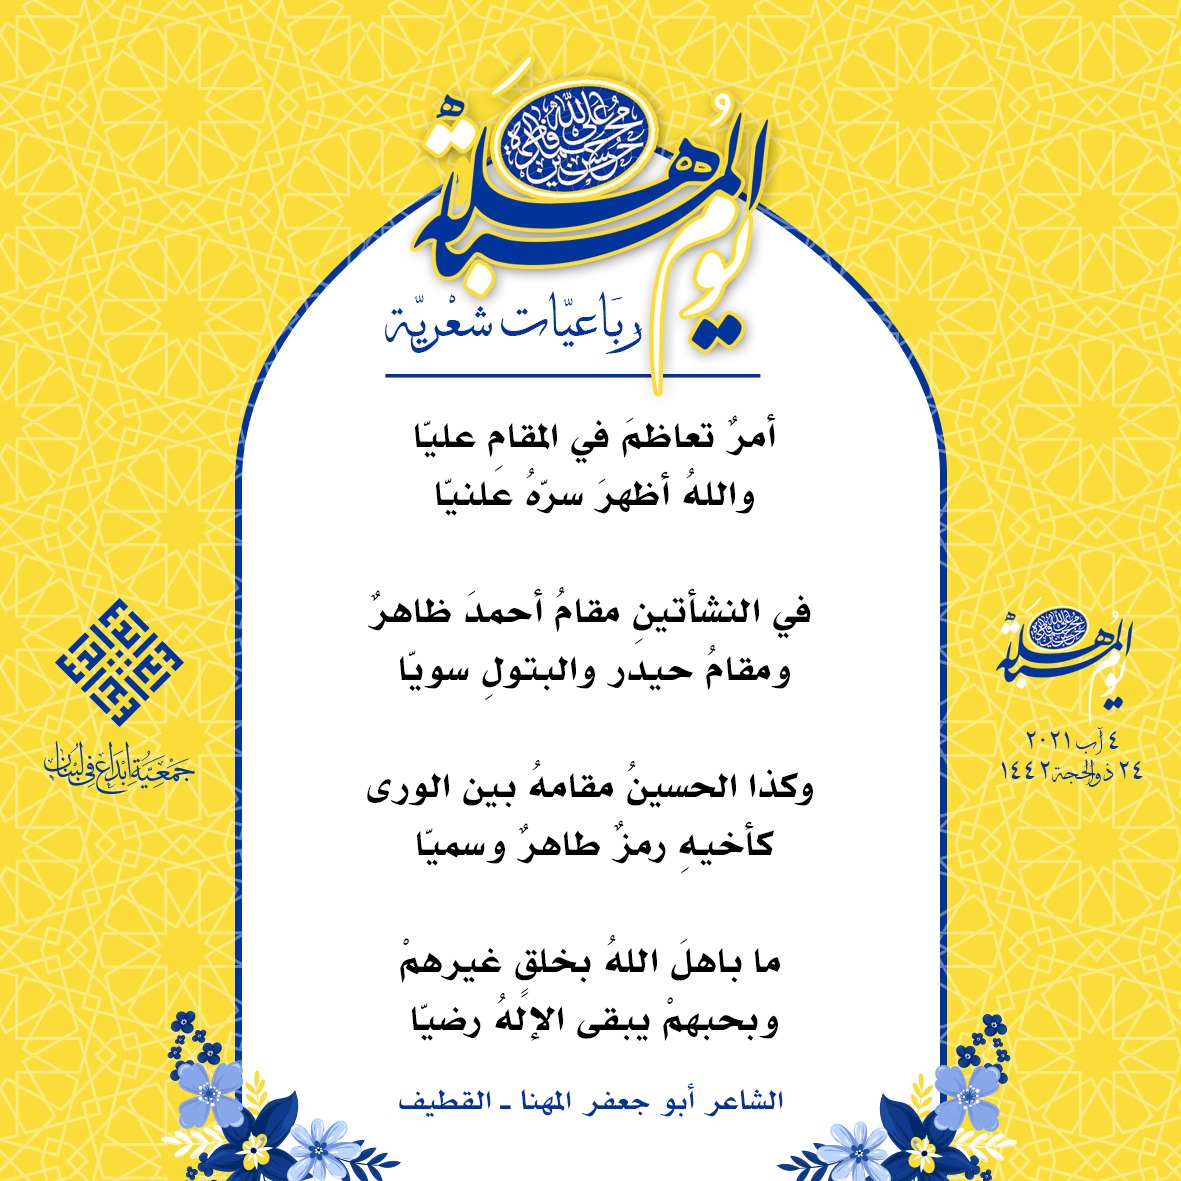 يوم المباهلة
محمد علي فاطمة حسن حسين
رباعيّات شعْريّة
أمرٌ تعاظمَ في المقامِ عليّا
واللهُ أظهرَ سرّهُ علنيّا
في النشأتينِ مقامُ أحمدَ ظاهرٌ
ومقامُ حيدر والبتولِ سويّا
وكذا الحسينُ مقامهُ بين الورى
كأخيهِ رمزٌ طاهرٌ وسميّا
ما باهلَ اللهُ بخلقٍ غيرهمْ
وبحبهمْ يبقى الإلهُ رضيّا
الشاعر أبو جعفر المهنا ـ القطيف
جمعيّة إبداع في لبنان
يوم المباهلة
٤ آب ٢٠٢١
٢٤ ذو الحجة ١٤٤٢